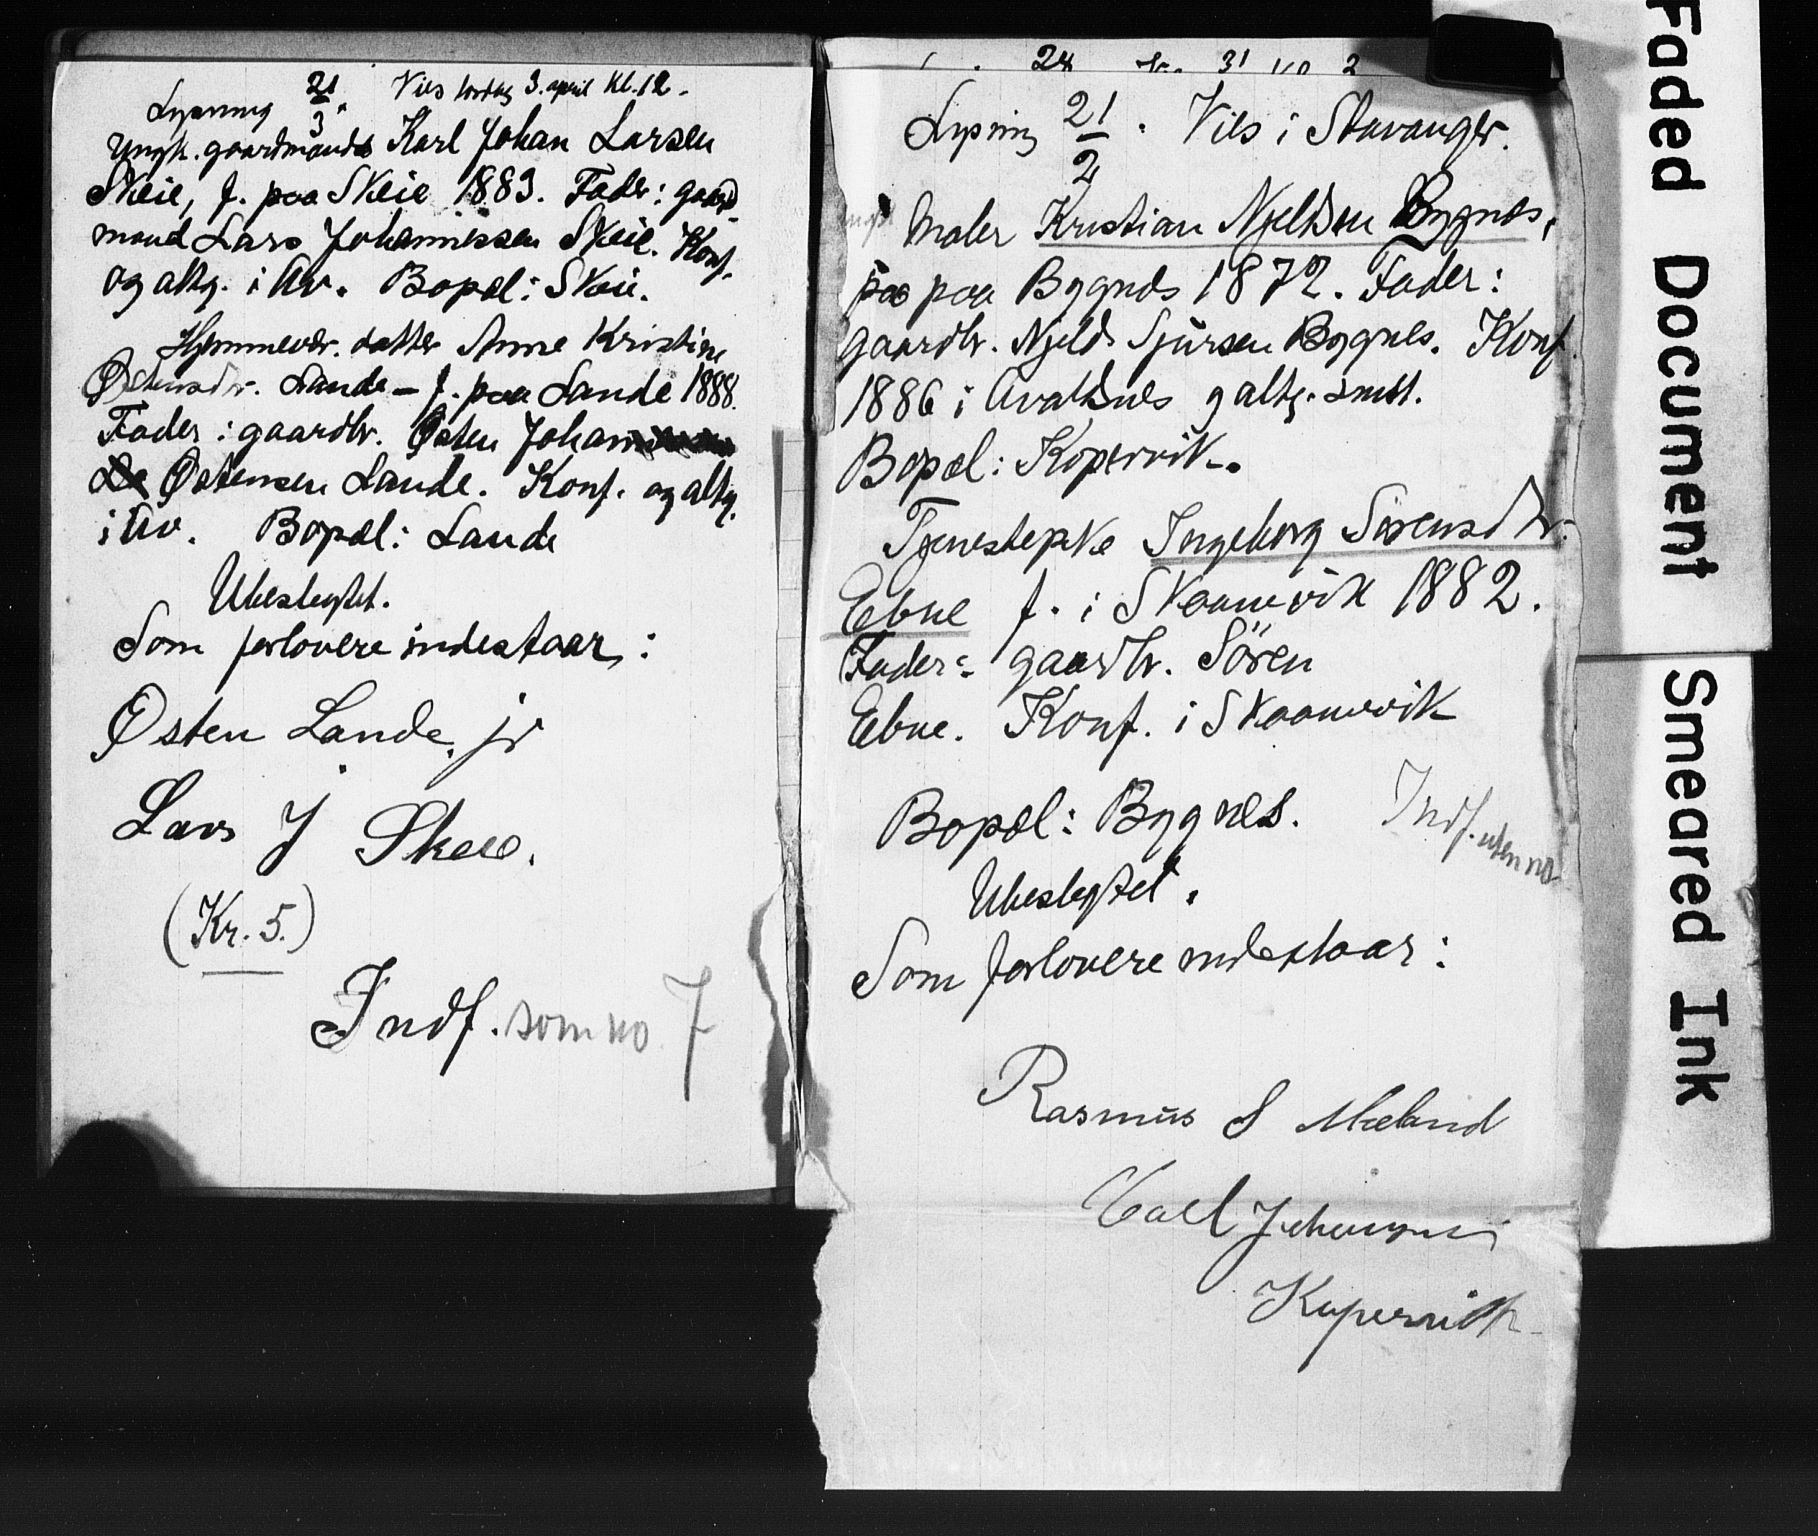 Lysning 21/3. Vies lørdag 3. april kl. 12.
Ungk. gaardmand Karl Johan Larsen
Skeie, f. paa Skeie 1883. Fader: gaard-
mand Lars Johannessen Skeie. Konf.
og altg. i Av. Bopæl: Skeie.
Hjemmevær. datter Anne Kristine
Østensdtr. Lande – f. paa Lande 1888.
Fader: gaardbr. Østen Johan
Østensen Lande. Konf. og altg.
i Av. Bopæl: Lande
Ubeslegtet.
Som forlovere indestaar:
Østen Lande. jr
Lars J Skeie.
(Kr. 5.)
Indf. som no 7
24 31 2
Lysning 21/2. Vies i Stavanger.
ungk Maler Kristian Njeldsen Bygnes,
paa Bygnes 1872. Fader:
gaardbr. Njeld Sjursen Bygnes. Konf.
1886 i Avaldsnes
Bopæl: Kopervik.
Tjenestepike Ingeborg Sørensdtr.
Ebne f. i Skaanevik 1882.
Fader: gaardbr. Sören
Ebne. Konf. i Skaanevik
Bopæl: Bygnes. Indf. uten no
Ubeslegtet.
Som forlovere indestaar:
Rasmus S Mæland
Carl Johannesen
Kopervik
Faded Document
Smeared Ink